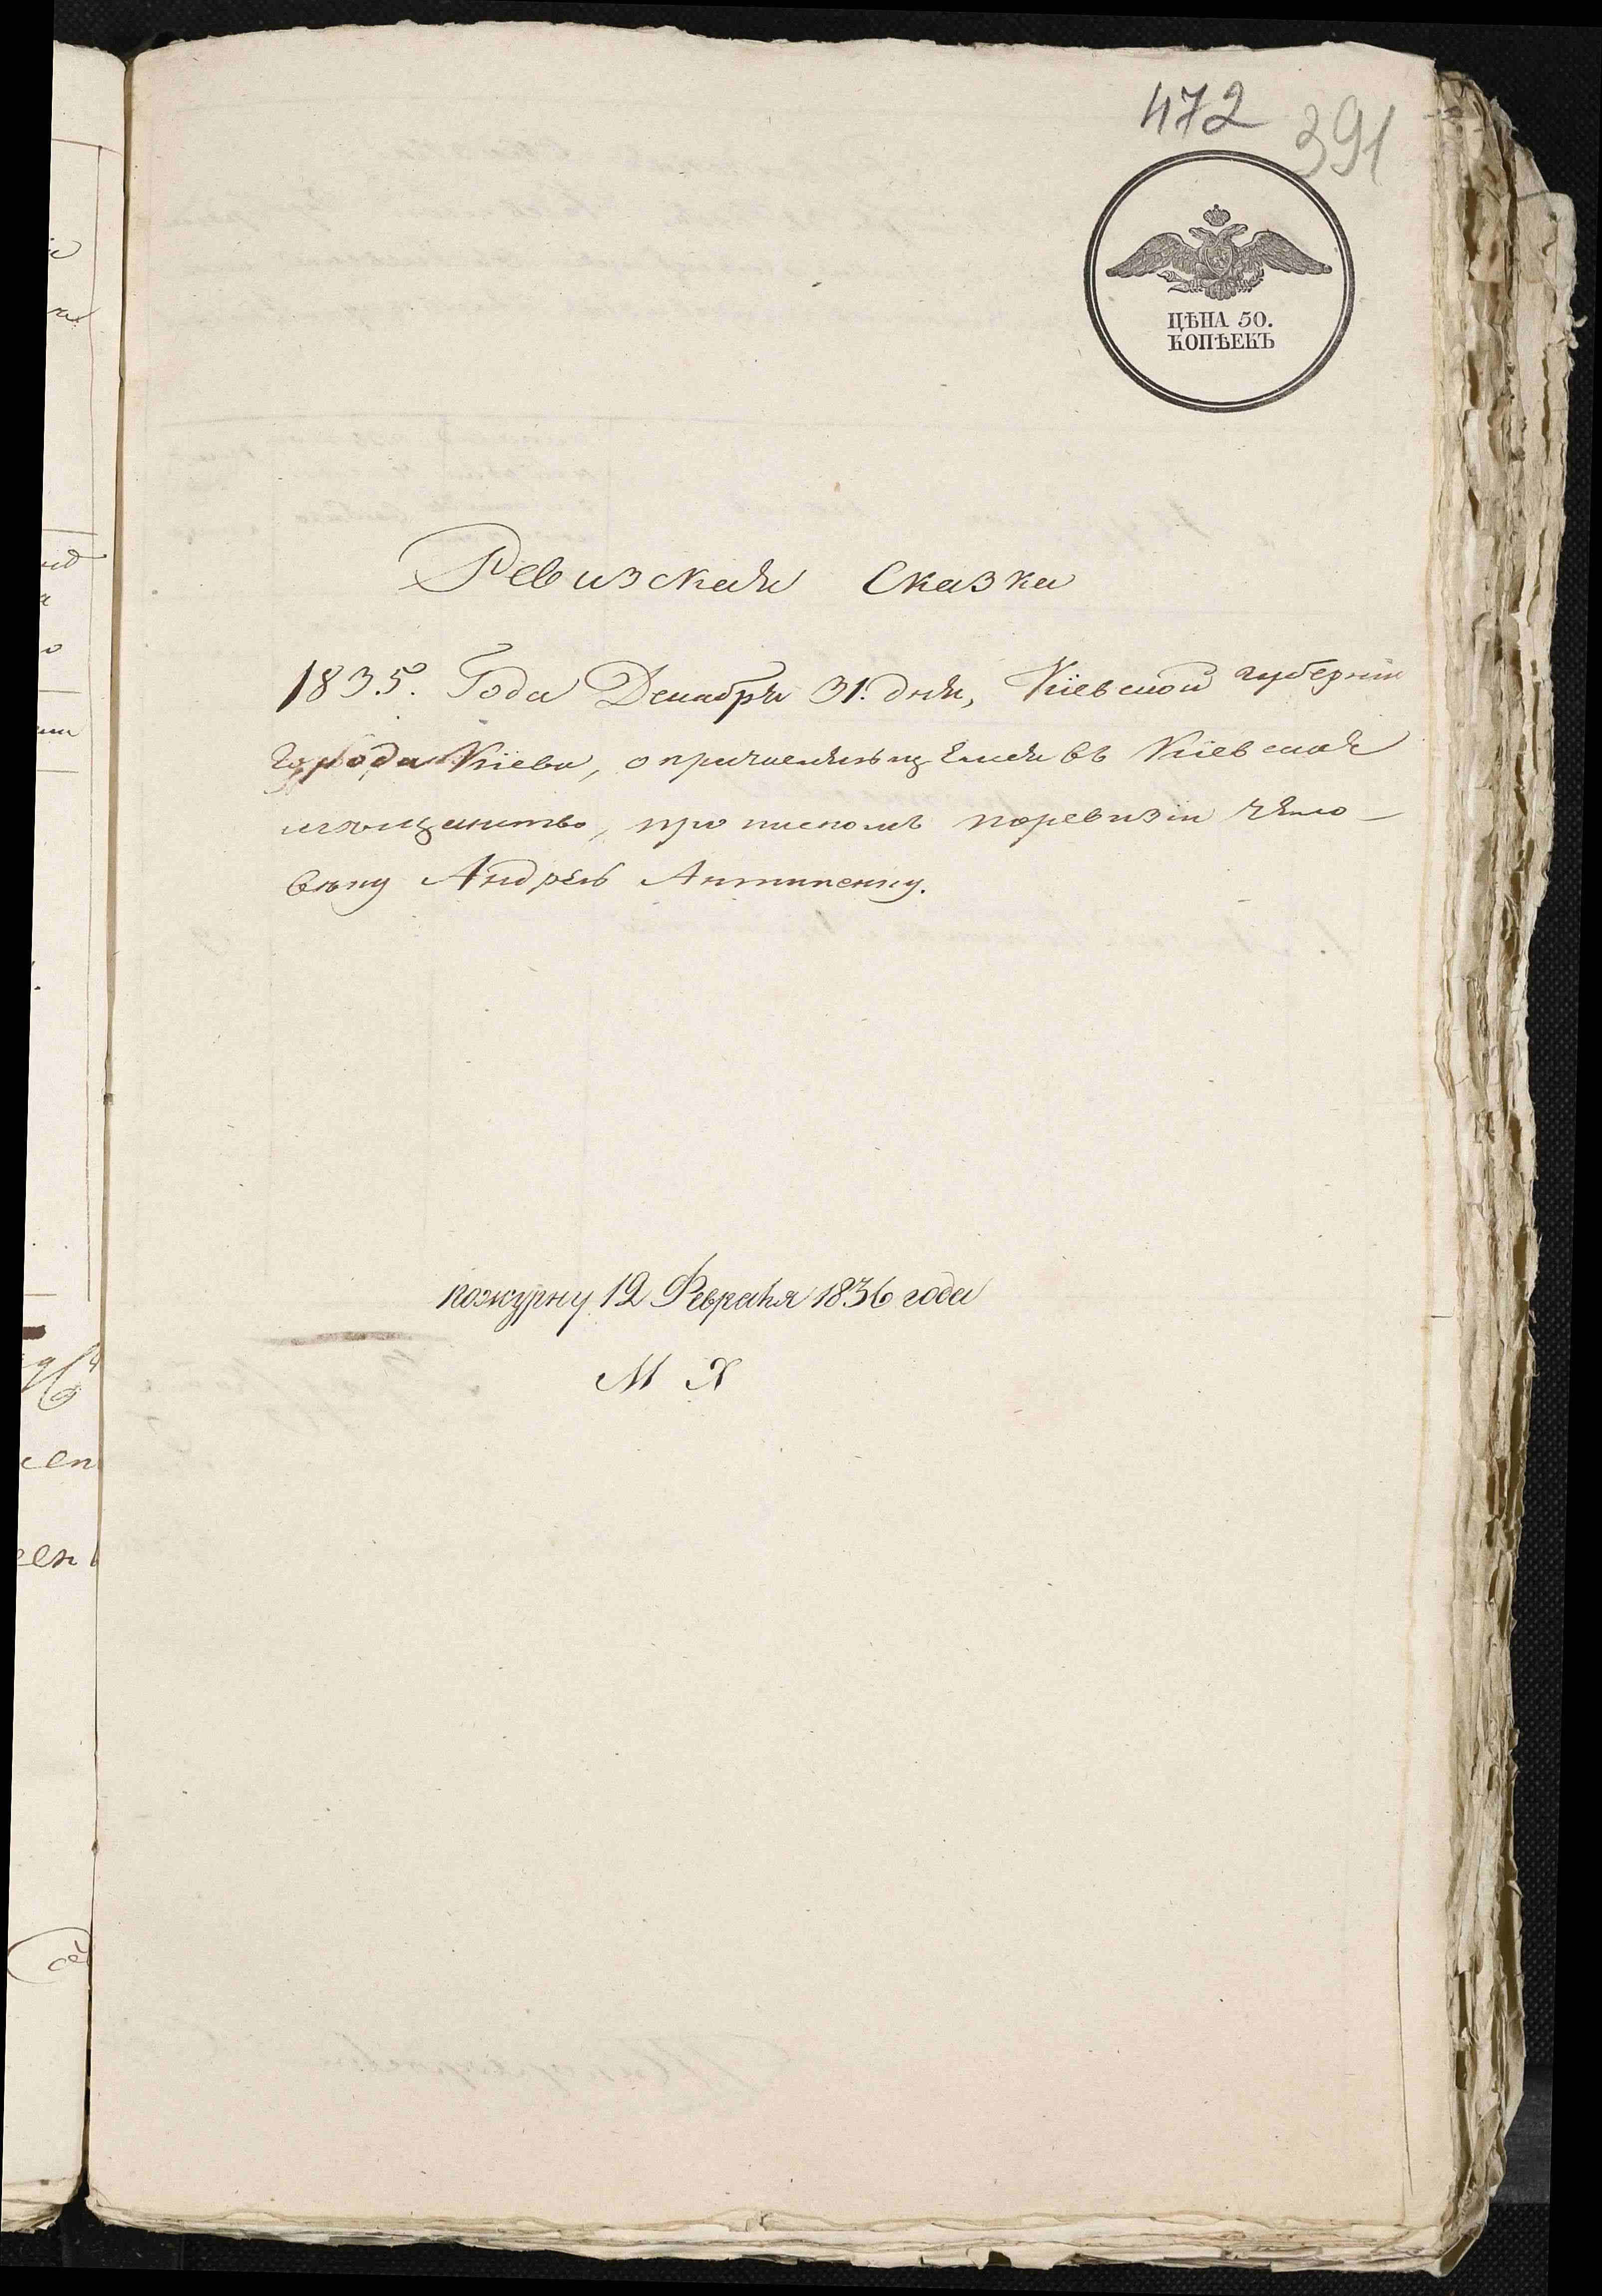 472
391
ЦѢНА 50.
КОПѢЕКЪ
Ревизская Сказка
1835. Года Декабря 31. дня, Кіевской губерніи
города Кіева, о причисляющемся въ Кіевское
мѣщанство, прописномъ поревизіи чело-
вѣку Андрею Антипенку.
пожурну 12 Февраля 1836 года
М Х